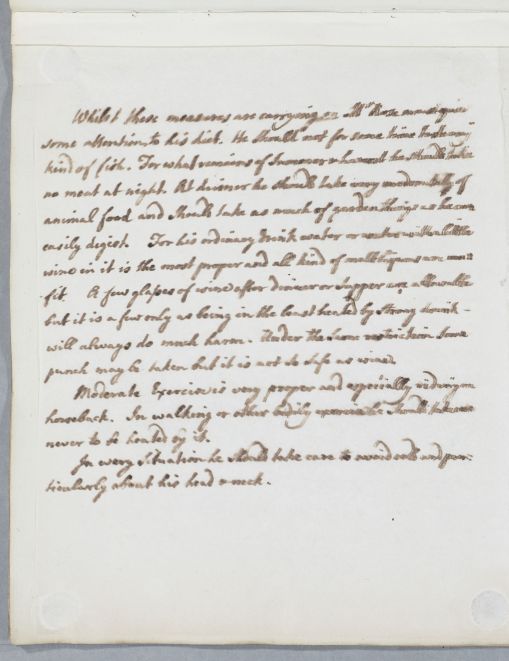 Whilst these measures are carrying on Mr Rose must give
some attention to his diet. He should not for some time taste any
kind of fish. For what remains of Summer & harvest he should take
no meat at night. At dinner he should take very moderately of
animal food and should take as much of garden things as he can
easily digest. For his ordinary drink water or water with a little
wine in it is the most proper and all kind of malt liquors are un
fit. A few glasses of wine after dinner or supper are allowable
but it is a few only as being in the least heated by strong drink
will always do much harm. Under the same restriction some
punch may be taken but it is not so safe as wine.
Moderate Exercise is very proper and especially riding on
horseback. In walking or other bodily exercise he should take care
never to be heated by it.
In every situation he should take care to avoid cold and par:
ticularly about his head & neck.